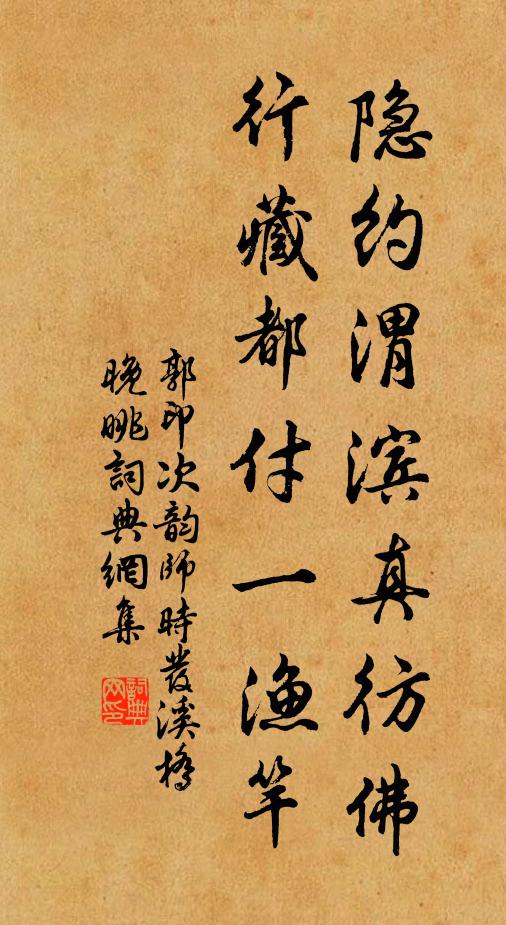 隐约渭滨真彷佛
行藏都付一渔竿
郭印次韵师時發溪橋
晚眺詞典網集
詞典
网印